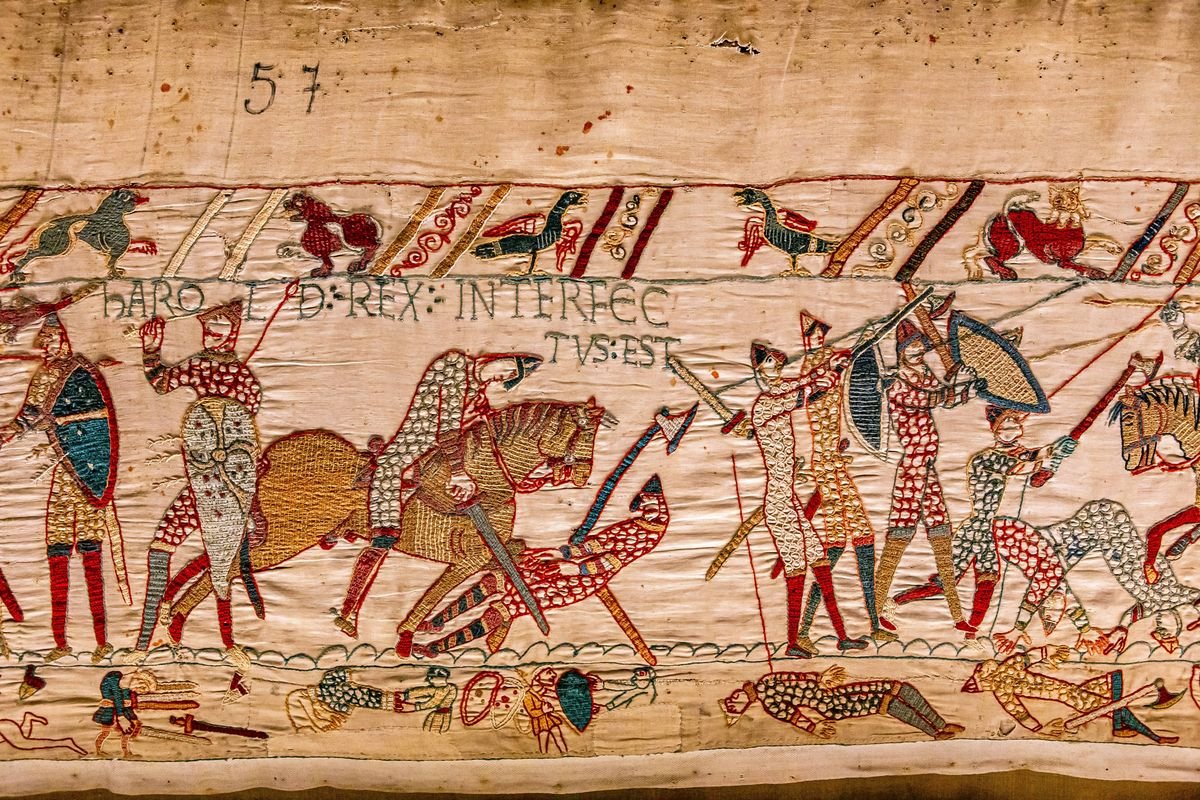 57
hARO L D:REX: INTERFEC
TVS:EST